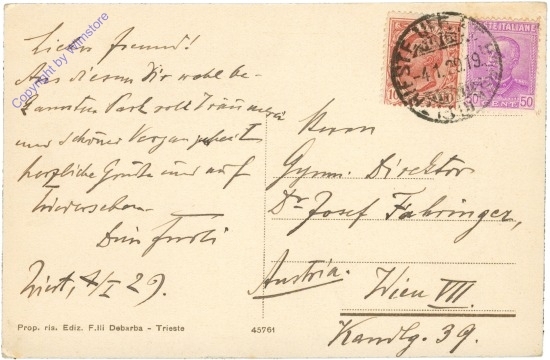 Lieber Freund!
Aus diesem Dir wohl be-
kannten Park voll Träumerei
und schöner Vergangenheit
herzliche Grüße und auf
Wiedersehen
Dein
Triest, 4/I 29.
Herrn
Gymn. Direktor
Dr Josef Fahringer,
Austria. Wien VIII.
Kandlg. 39.
Prop. ris. Ediz. F.lli Debarba - Trieste
45761
TRIESTE
-4.1.29.19
POSTE ITALIANE
50
CENT.
10
Copyright by wimstore